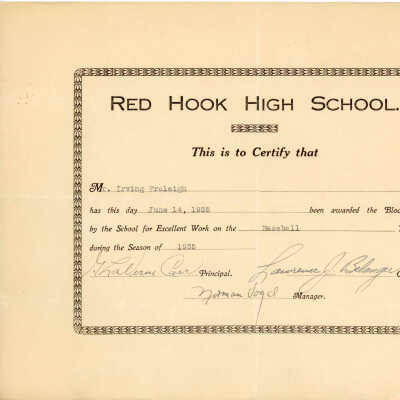 RED HOOK HIGH SCHOOL.
This is to Certify that
Mr. Irving Fraleigh
has this day June 14, 1935 been awarded the Bloc
by the School for Excellent Work on the Baseball
during the Season of 1935
G LaVerne Carr Principal. Lawrence J. Belanger
Norman Vogel Manager.